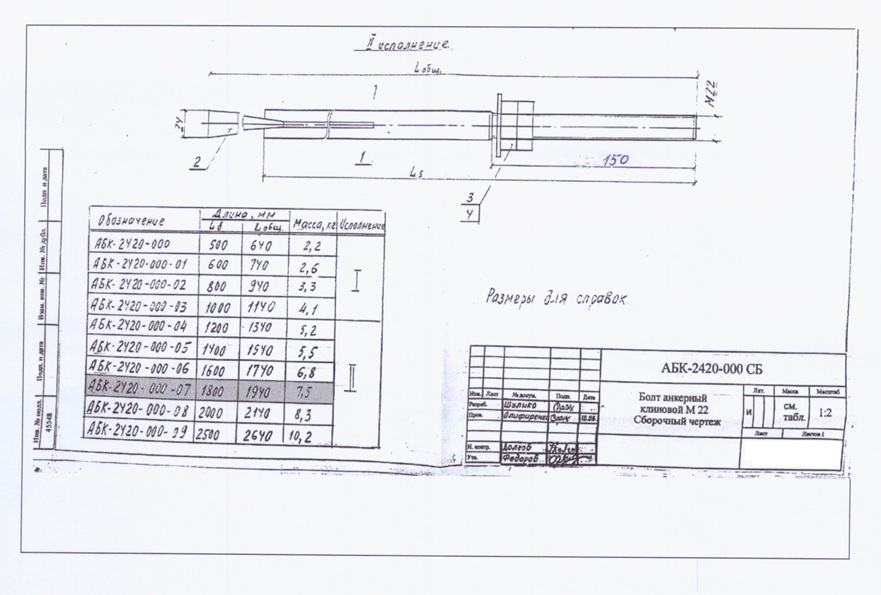 II исполнение
L общ.
М22
24
2
1
150
Lб
3
4
Обозначение Длина, мм Масса, кг Исполнение
Lб L общ.
АБК-2420-000 500 640 2,2
АБК-2420-000-01 600 740 2,6
АБК-2420-000-02 800 940 3,3 I
АБК-2420-000-03 1000 1140 4,1
АБК-2420-000-04 1200 1340 5,2
АБК-2420-000-05 1400 1540 5,5
АБК-2420-000-06 1600 1740 6,8 II
АБК-2420-000-07 1800 1940 7,5
АБК-2420-000-08 2000 2140 8,3
АБК-2420-000-09 2500 2640 10,2
Размеры для справок
Подп. и дата
Инв. № дубл.
Взам. инв. №
Подп. и дата
Инв. № подл.
45548
АБК-2420-000 СБ
Изм. Лист № докум. Подп. Дата
Разраб. Шилико
Пров.
Н. контр. Долгов
Утв. Федоров
Болт анкерный
клиновой М 22
Сборочный чертеж
Лит. Масса Масштаб
И см. табл. 1:2
Лист Листов 1